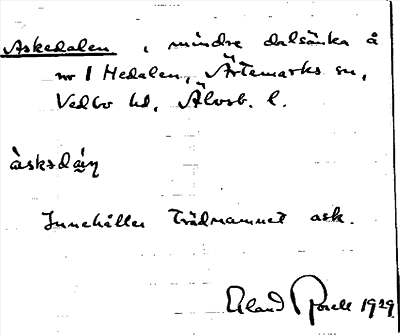 Askedalen, mindre dalsänka å
nr 1 Hedalen, Ärtemarks sn,
Vedbo hd, Älvsb. l.
Innehåller trädnamnet ask.
Erland Rosell 1929